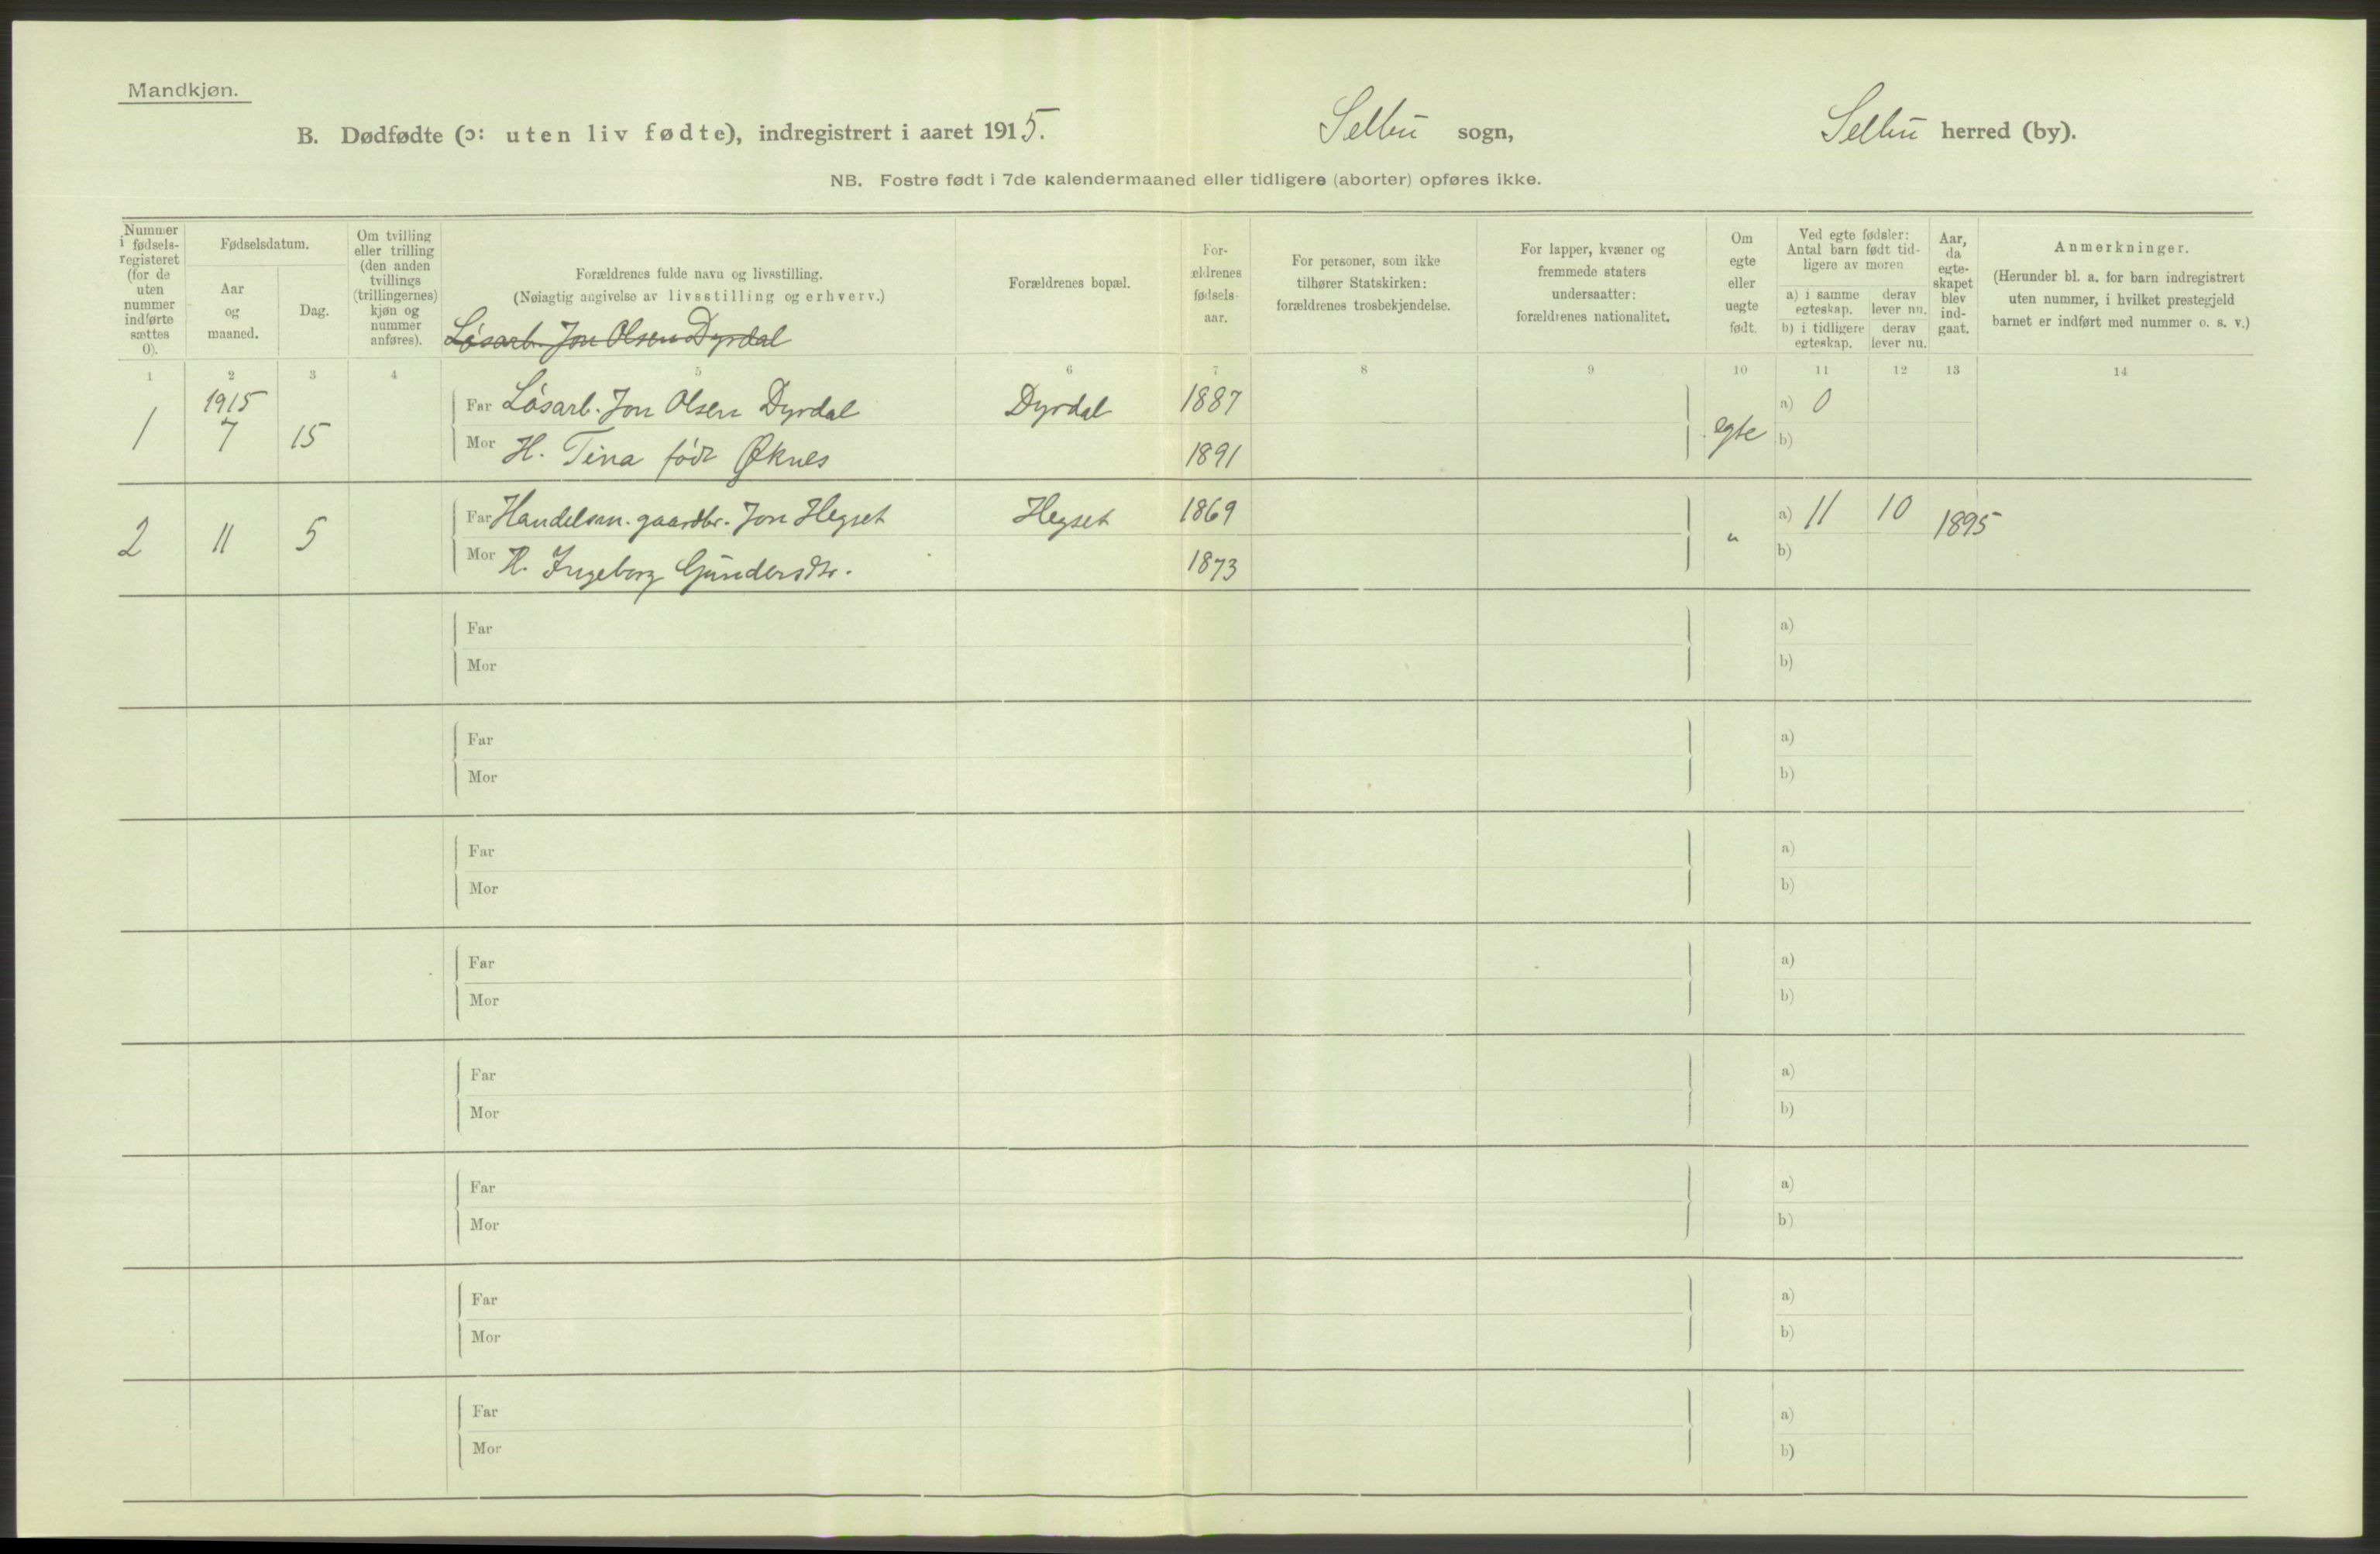 Mandkjøn.
B. Dødfødte (ɔ: uten liv fødte), indregistrert i aaret 1915. Selbu sogn, Selbu herred (by).
NB. Fostre født i 7de kalendermaaned eller tidligere (aborter) opføres ikke.
Nummer i fødsels-registeret (for de uten nummer indførte sættes 0).
Fødselsdatum.
Aar og maaned.
Dag.
Om tvilling eller trilling (den anden tvillings (trillingernes) kjøn og nummer anføres).
Forældrenes fulde navn og livsstilling.
(Nøiagtig angivelse av livsstilling og erhverv.)
Løsarb. Jon Olsen Dyrdal
Forældrenes bopæl.
For-ældrenes fødsels-aar.
For personer, som ikke tilhører Statskirken: forældrenes trosbekjendelse.
For lapper, kvæner og fremmede staters undersaatter: forældrenes nationalitet.
Om egte eller uegte født.
Ved egte fødsler: Antal barn født tid-ligere av moren
a) i samme egteskap. derav lever nu.
b) i tidligere egteskap. derav lever nu.
Aar, da egte-skapet blev ind-gaat.
Anmerkninger.
(Herunder bl. a. for barn indregistrert uten nummer, i hvilket prestegjeld barnet er indført med nummer o. s. v.)
1 2 3 4 5 6 7 8 9 10 11 12 13 14
1 1915 7 15 Far Løsarb. Jon Olsen Dyrdal Dyrdal 1887 egte a) 0
Mor H. Tina født Øknes 1891 b)
2 11 5 Far Handelsm. gaardbr. Jon Hegset Hegset 1869 " a) 11 10 1895
Mor H. Ingeborg Gundersdtr. 1873 b)
Far a)
Mor b)
Far a)
Mor b)
Far a)
Mor b)
Far a)
Mor b)
Far a)
Mor b)
Far a)
Mor b)
Far a)
Mor b)
Far a)
Mor b)